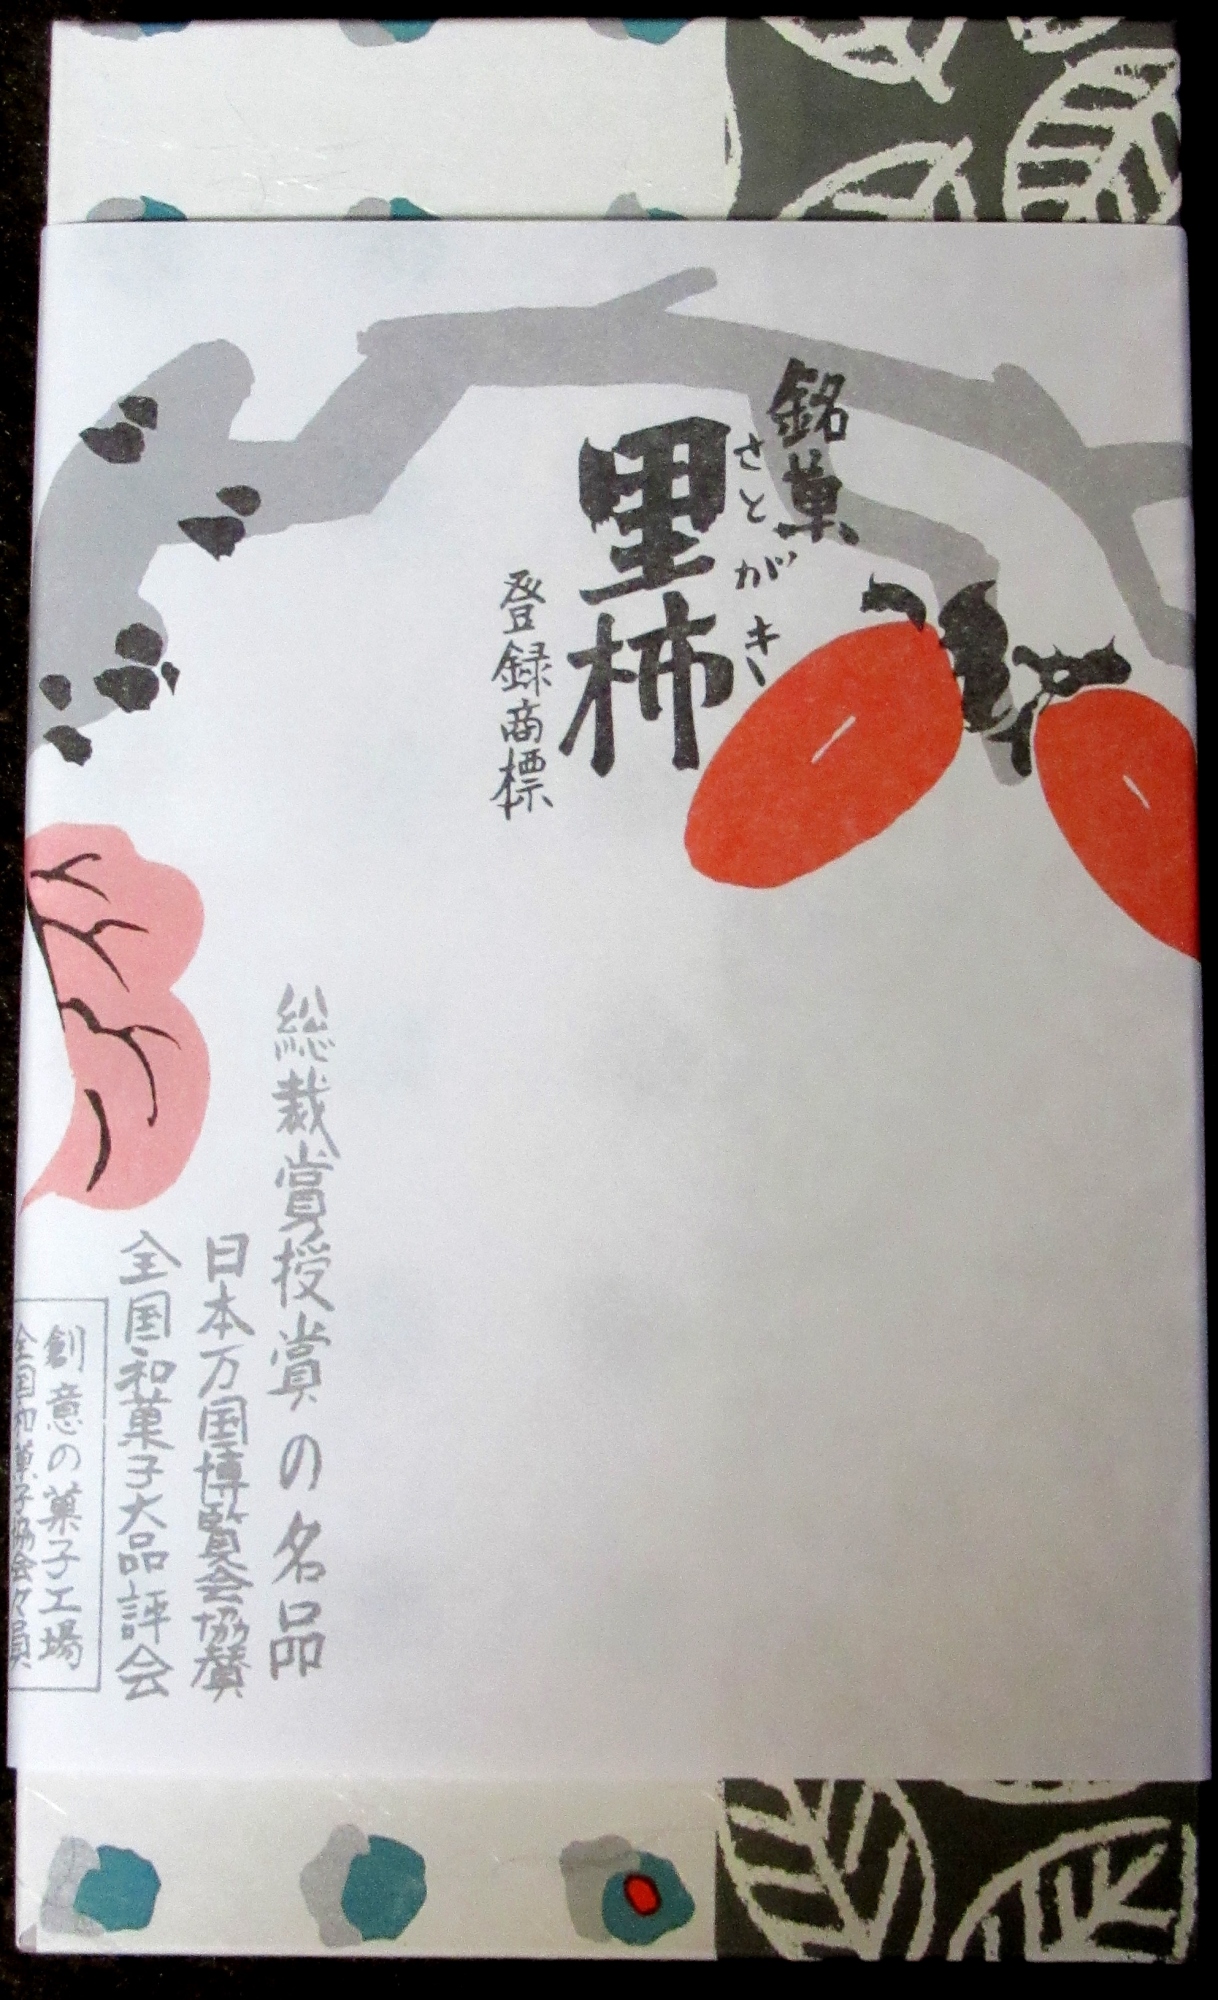 銘菓
さとがき
里柿
登録商標
総裁賞授賞の名品
日本万国博覧会協賛
全国和菓子大品評会
創意の菓子工場
全国和菓子協会々員